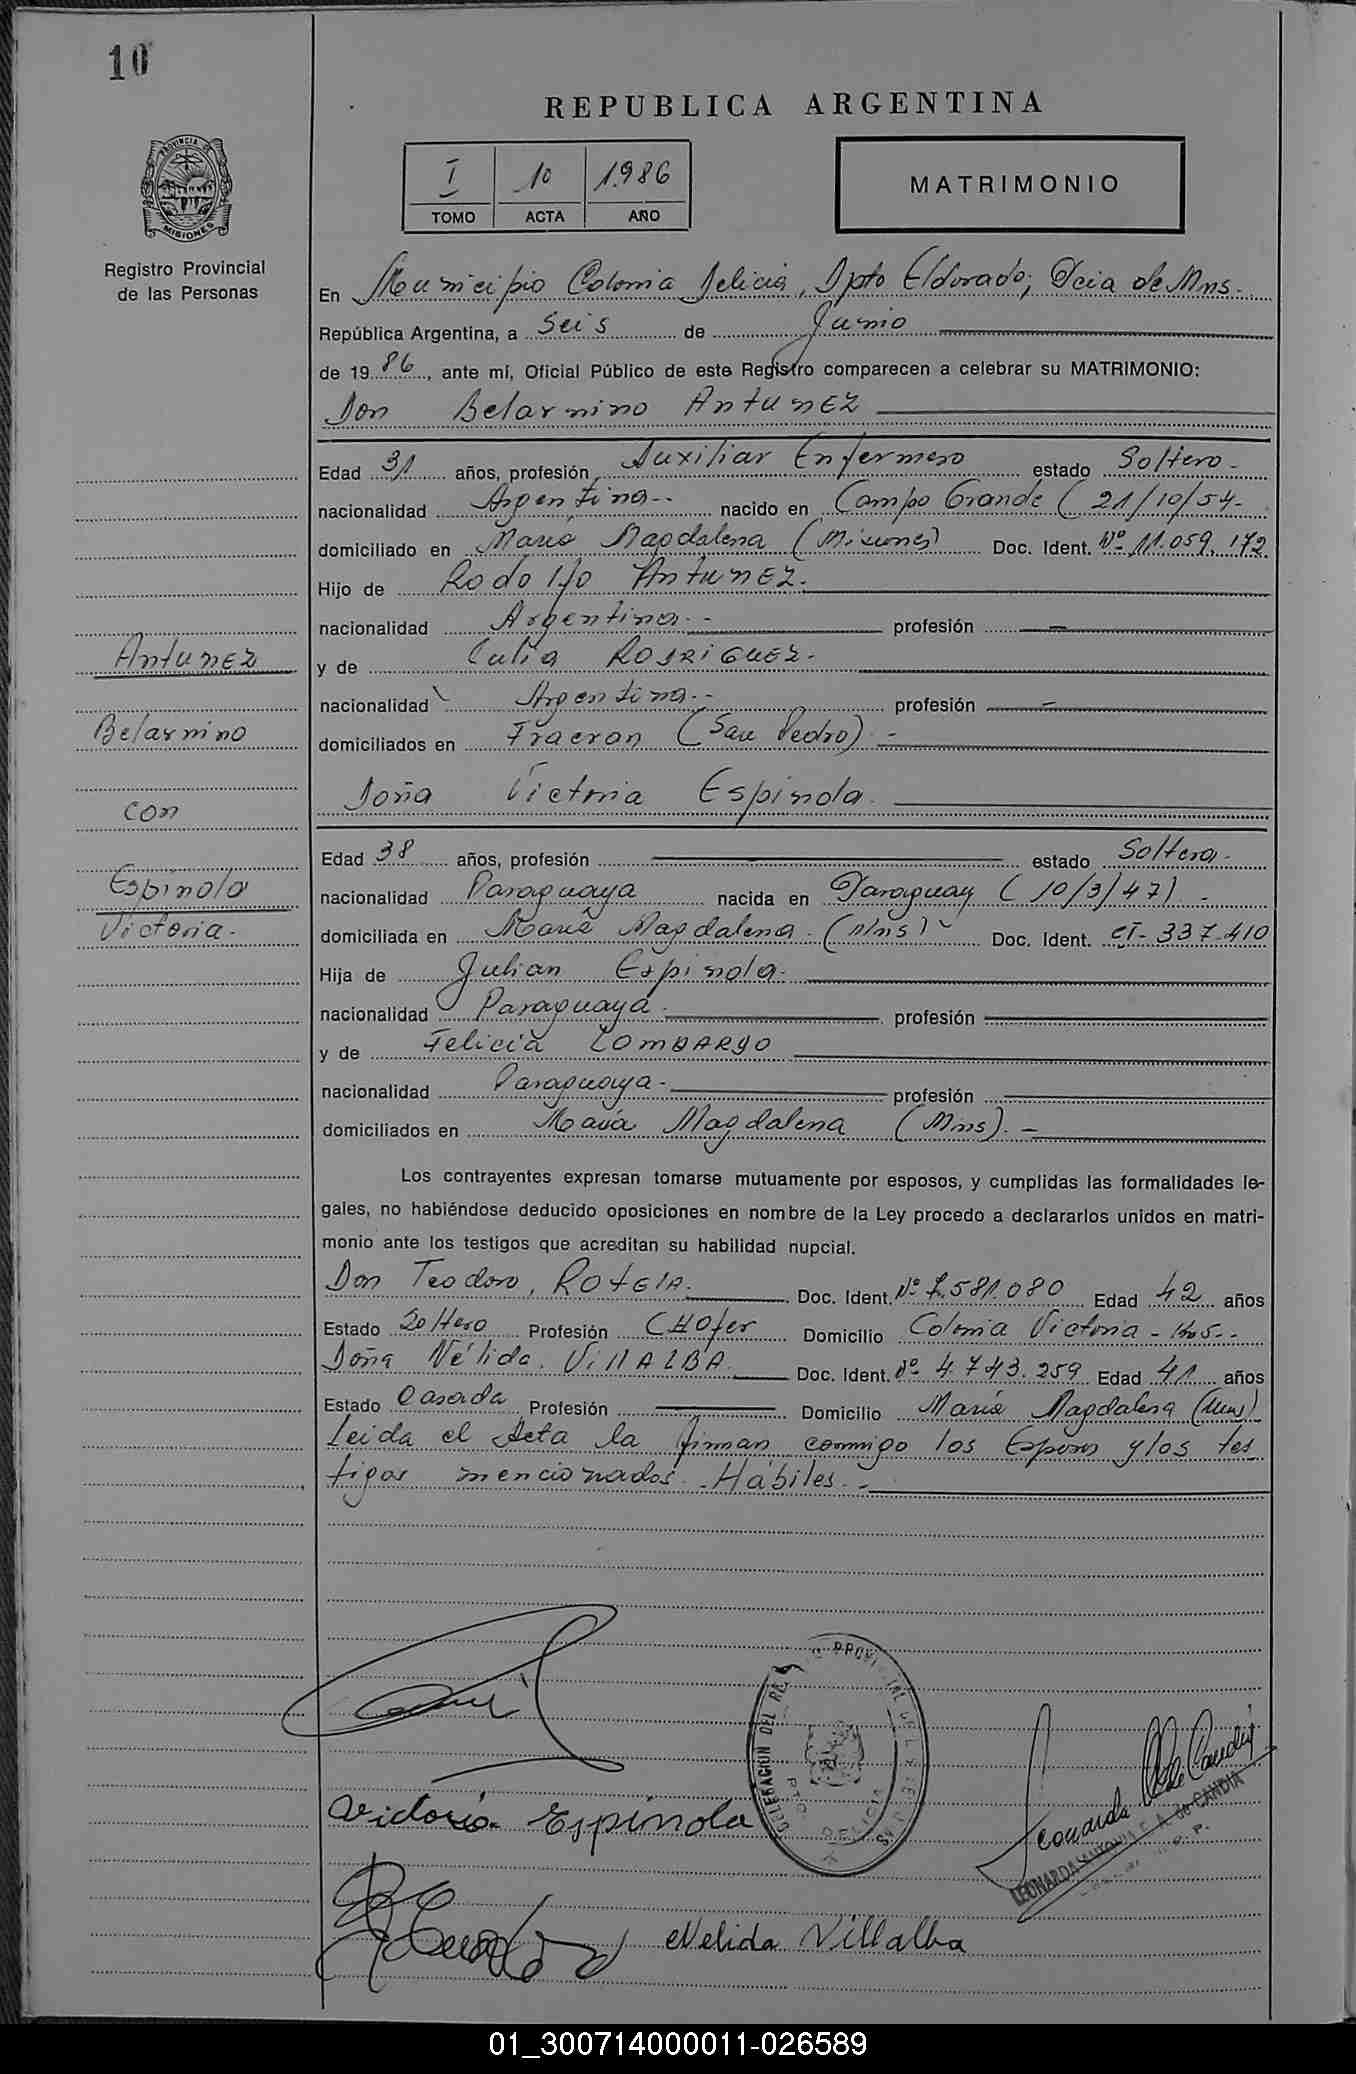 10
REPUBLICA ARGENTINA
I 10 1.986
TOMO ACTA AÑO
MATRIMONIO
PROVINCIA DE
MISIONES
Registro Provincial
de las Personas
En Municipio Colonia Delicia, Dpto Eldorado; Pcia de Mns.-
República Argentina, a Seis de Junio
de 1986, ante mí, Oficial Público de este Registro comparecen a celebrar su MATRIMONIO:
Don Belarmino AntunEZ
Edad 31 años, profesión Auxiliar Enfermero estado Soltero-
nacionalidad Argentina-- nacido en Campo Grande (21/10/54-
domiciliado en María Magdalena (Misiones) Doc. Ident. Nº 11.059.172.
Hijo de Rodolfo AntunEZ.
nacionalidad Argentina.- profesión —
Antunez
y de Julia RODRIGUEZ.-
nacionalidad Argentina.-- profesión —
Belarmino
domiciliados en Fracran (San Pedro).-
Doña Victoria Espinola.
con
Edad 38 años, profesión estado Soltera.-
Espinola
nacionalidad Paraguaya nacida en Paraguay (10/3/47).-
Victoria.-
domiciliada en María Magdalena.(Mns)- Doc. Ident. CI- 337-410
Hija de Julian Espinola.-
nacionalidad Paraguaya. profesión
y de Felicia
nacionalidad Paraguaya- profesión
domiciliados en María Magdalena (Mns).-
Los contrayentes expresan tomarse mutuamente por esposos, y cumplidas las formalidades le-
gales, no habiéndose deducido oposiciones en nombre de la Ley procedo a declararlos unidos en matri-
monio ante los testigos que acreditan su habilidad nupcial.
Don Teodoro, Doc. Ident. Nº 7.581.080 Edad 42 años
Estado Soltero Profesión CHOfer Domicilio Colonia Victoria -
Doña Nélida. VillALBA. Doc. Ident. Nº 4.743.259 Edad 41 años
Estado Casada Profesión Domicilio María Magdalena (Mns)
Leida el Acta la firman conmigo los Esposos y los tes
tigos mencionados. Hábiles.-
DELEGACION DEL
PTO. DELICIA
Victoria Espinola
Leonarda de Candia
LEONARDA ANTONIA E. A. de CANDIA
Nelida Villalba
01_300714000011-026589